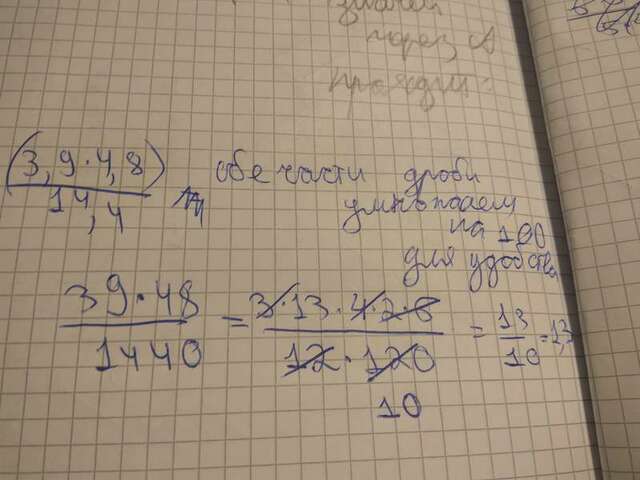 через A
(3,9·4,8)
14,4
обе части дроби
умножаем
на 100
для удобства
39·48
1440
=
3·13·4·2·6
12·120
10
= 13/10 = 1,3